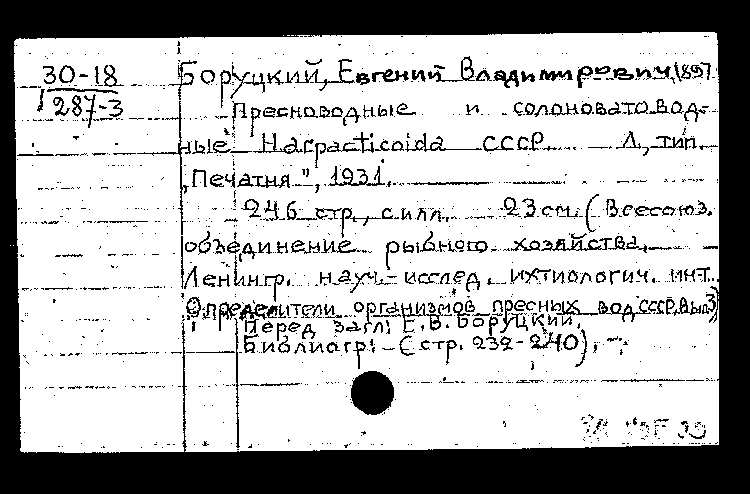 30-18
287-3
Боруцкий, Евгений Владимирович, 1897
Пресноводные и солоноватовод-
ные Harpacticoida СССР. Л., тип.
„Печатня", 1931.
246 стр., с илл. 23 см. (Всесоюз.
объединение рыбного хозяйства.
Ленингр. науч.-исслед. ихтиологич. инт.
Определители организмов пресных вод СССР, Вып. 3)
Перед загл: Е. В. Боруцкий.
Библиогр: (стр. 232-240).